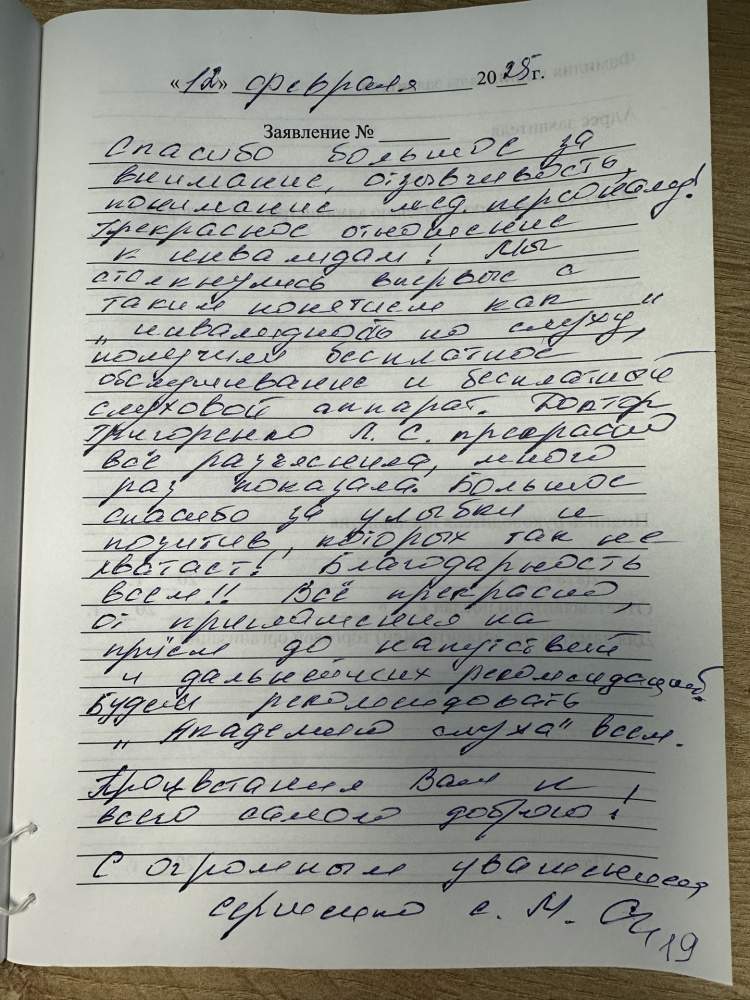 «12» февраля 2025 г.
Заявление №
Спасибо большое за
внимание, отзывчивость,
понимание мед. персоналу!
Прекрасное отношение
к инвалидам! Мы
столкнулись впервые с
таким понятием как
„инвалидность по слуху",
получили бесплатное
обслуживание и бесплатный
слуховой аппарат. Доктор
Григоренко Л. С. прекрасно
всё разъяснила, много
раз показала. Большое
спасибо за улыбки и
позитив, которых так не
хватает! Благодарность
всем!! Всё прекрасно,
от приглашения на
приём до напутствий
и дальнейших рекомендаций.
Будем рекомендовать
„Академию слуха" всем.
Процветания Вам и
всего самого доброго!
С огромным уважением
с. М.
19